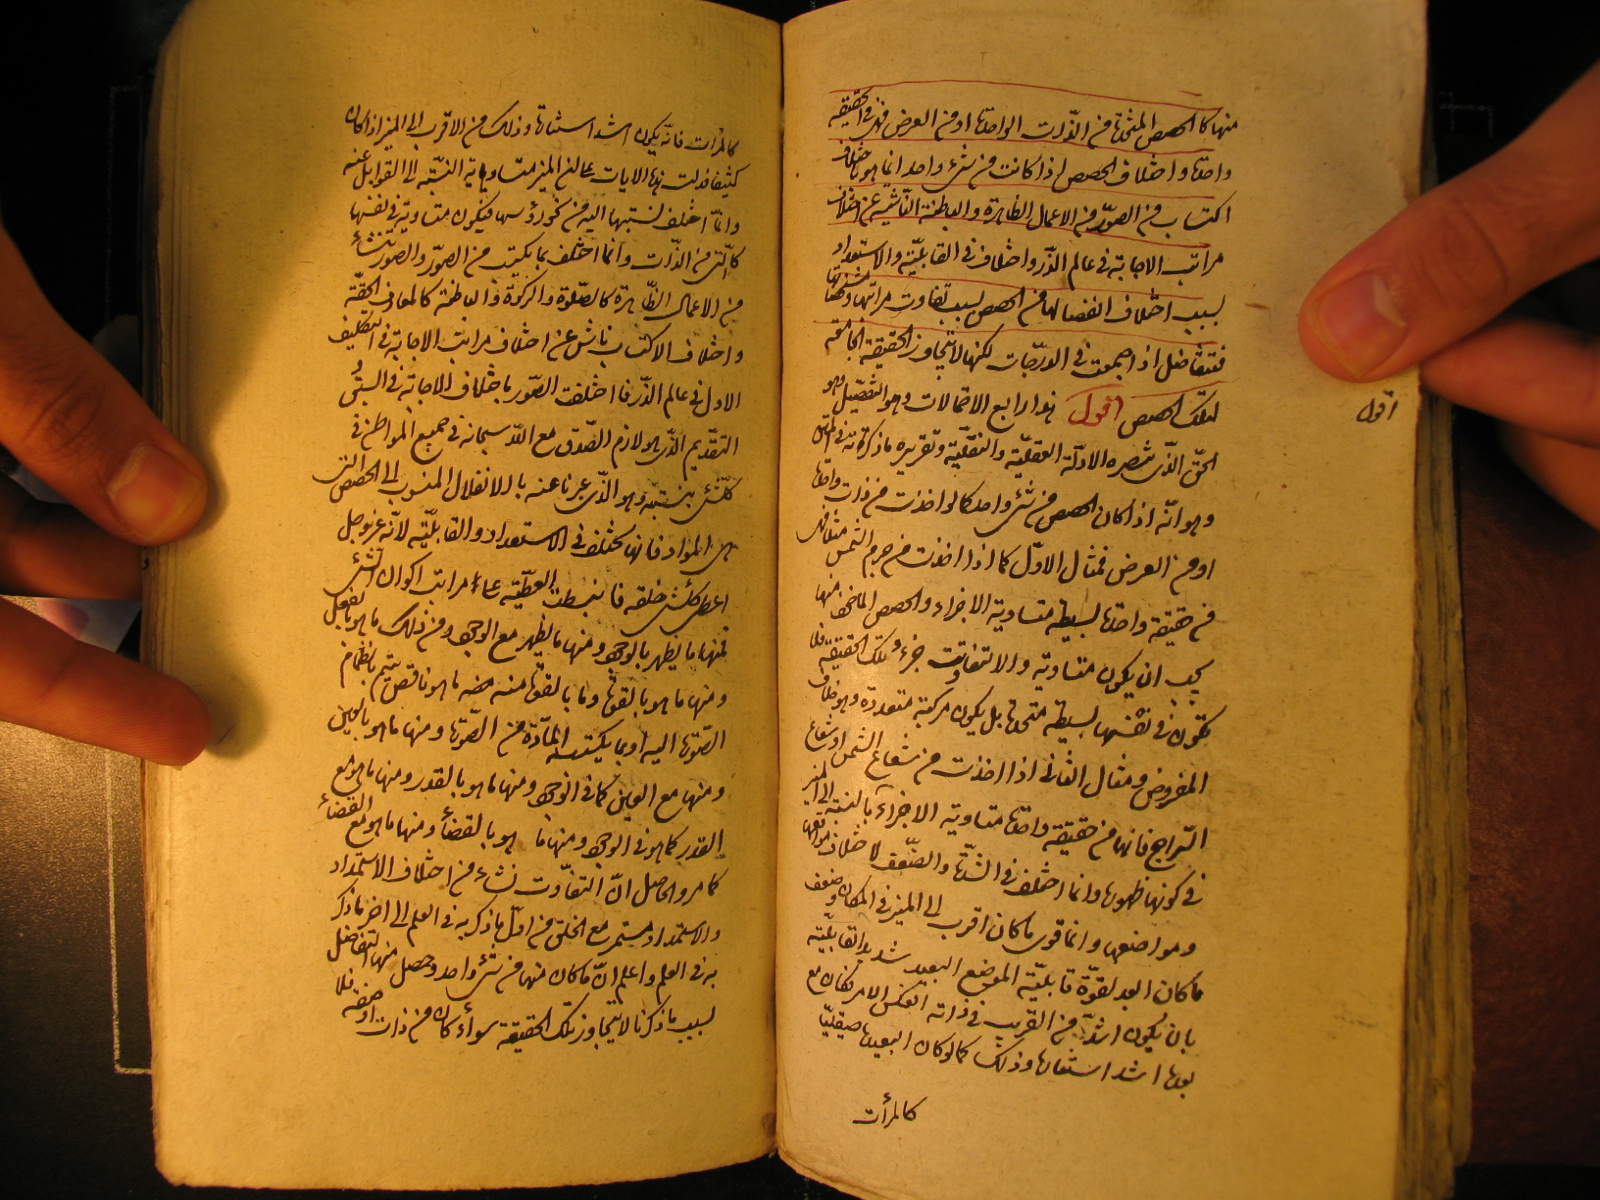 منها كالحصص المتخذة من الذّات الواحدة او من العرض فهي في الحقيقة
واحدة واختلاف الحصص اذا كانت من شيء واحد انما هو باختلاف
اكتساب من الصوّر من الاعمال الظاهرة والباطنة الناشية عن اختلاف
مراتب الاجابة في عالم الذّر واختلاف في القابليّة والاستعداد
بسبب اختلاف انفصالها من الحصص بسبب تفاوت مراتبها
فتتفاضل اذا اجتمعت في الدرّجات لكنها لا تتجاوز الحقيقة الجامعة
لتلك الحصص اقول هذا رابع الاحتمالات وهو التفصيل وهو
اقول
الحقّ الّذي تنصره الادلّة العقليّة والنقليّة وتقريره ما ذكرته في المتن
وهو انّه اذا كان الحصص من شيء واحد كما لو اخذت من ذات واحدة
او من العرض فمثال الاوّل كما اذا اخذت من جرم الشمس مثلا فهي
من حقيقة واحدة بسيطة متساوية الاجزاء والحصص الماخوذة منها
يجب ان يكون متساوية والا لتفاوتت جزء تلك الحقيقة فلا
يكون في نفسها بسيطة متحدة بل يكون مركبة متعددة وهو خلاف
المفروض ومثال الثاني اذا اخذت من شعاع الشمس او شعاع
السّراج فانها من حقيقة واحدة متساوية الاجزاء بالنسبة الى المنير
في كونها ظهوره وانما اختلف في الشدّة والضّعف لاختلاف مواقعها
ومواضعها وانما قوى ما كان اقرب الى المنير في المكان وضعف
ما كان ابعد لقوّة قابليّة الموضع البعيد شديد القابليّة
بان يكون اشدّ من القريب في ذاته انعكس الامر فكان مع
بعده اشد استنارة وذلك كما لو كان البعيد صيقليّا
كالمرآت
كالمرآت فانّه يكون اشد استنارة وذلك من الاقرب الى المنير اذا كان
كثيفا فدلت هذه الايات على ان المنير متساوية النسبة الى القوابل عنه
وانّما اختلف نسبتها اليه من نحو رؤسها فيكون متساوية في نفسها
كالّتي من الذّات وانما اختلف بما يكتسب من الصوّر والصوّر تنشأ
من الاعمال الظّاهرة كالصّلوة والزكوة والباطنة كالمعارف الحقّة
واختلاف الاكتساب ناش عن اختلاف مراتب الاجابة في التكليف
الاول في عالم الذّر فاختلفت الصّور باختلاف الاجابة في السبق و
التقديم الّذي هو لازم الصّدق مع اللّه سبحانه في جميع المواطن في
كلّ شيء بنسبته وهو الّذي عبرنا عنه بالانفعال المنسوب الى الحصص التي
هي المواد فانها تختلف في الاستعداد والقابليّة لانّه عزوجل
اعطى كلّ شيء خلقه فانبسطت العطيّة على مراتب اكوان الشيء
فمنها ما يظهر بالوجود ومنها ما يظهر مع الوجود ومن ذلك ما هو بالفعل
ومنها ما هو بالقوّة وما بالقوّة منه ما هو ناقص يتم بانضمام
الصوّرة اليه او بما يكتسبه المادّة من الصوّرة ومنها ما هو بالعين
ومنها مع العين كما في الوجود ومنها ما هو بالقدر ومنها ما هو مع
القدر كما هو في الوجود ومنها ما هو بالقضاء ومنها ما هو مع القضاء
كما مر والحاصل انّ التفاوت نشاء من اختلاف الاستمداد
والاستمداد مستمر مع الخلق من اوّل ما ذكر به في العلم الى اخر ما ذكر
به في العلم واعلم انّ ما كان منها من شيء واحد وحصل منها التفاضل
بسبب ما ذكرنا لا يتجاوز تلك الحقيقة سواء كان من ذات او صفة فلا